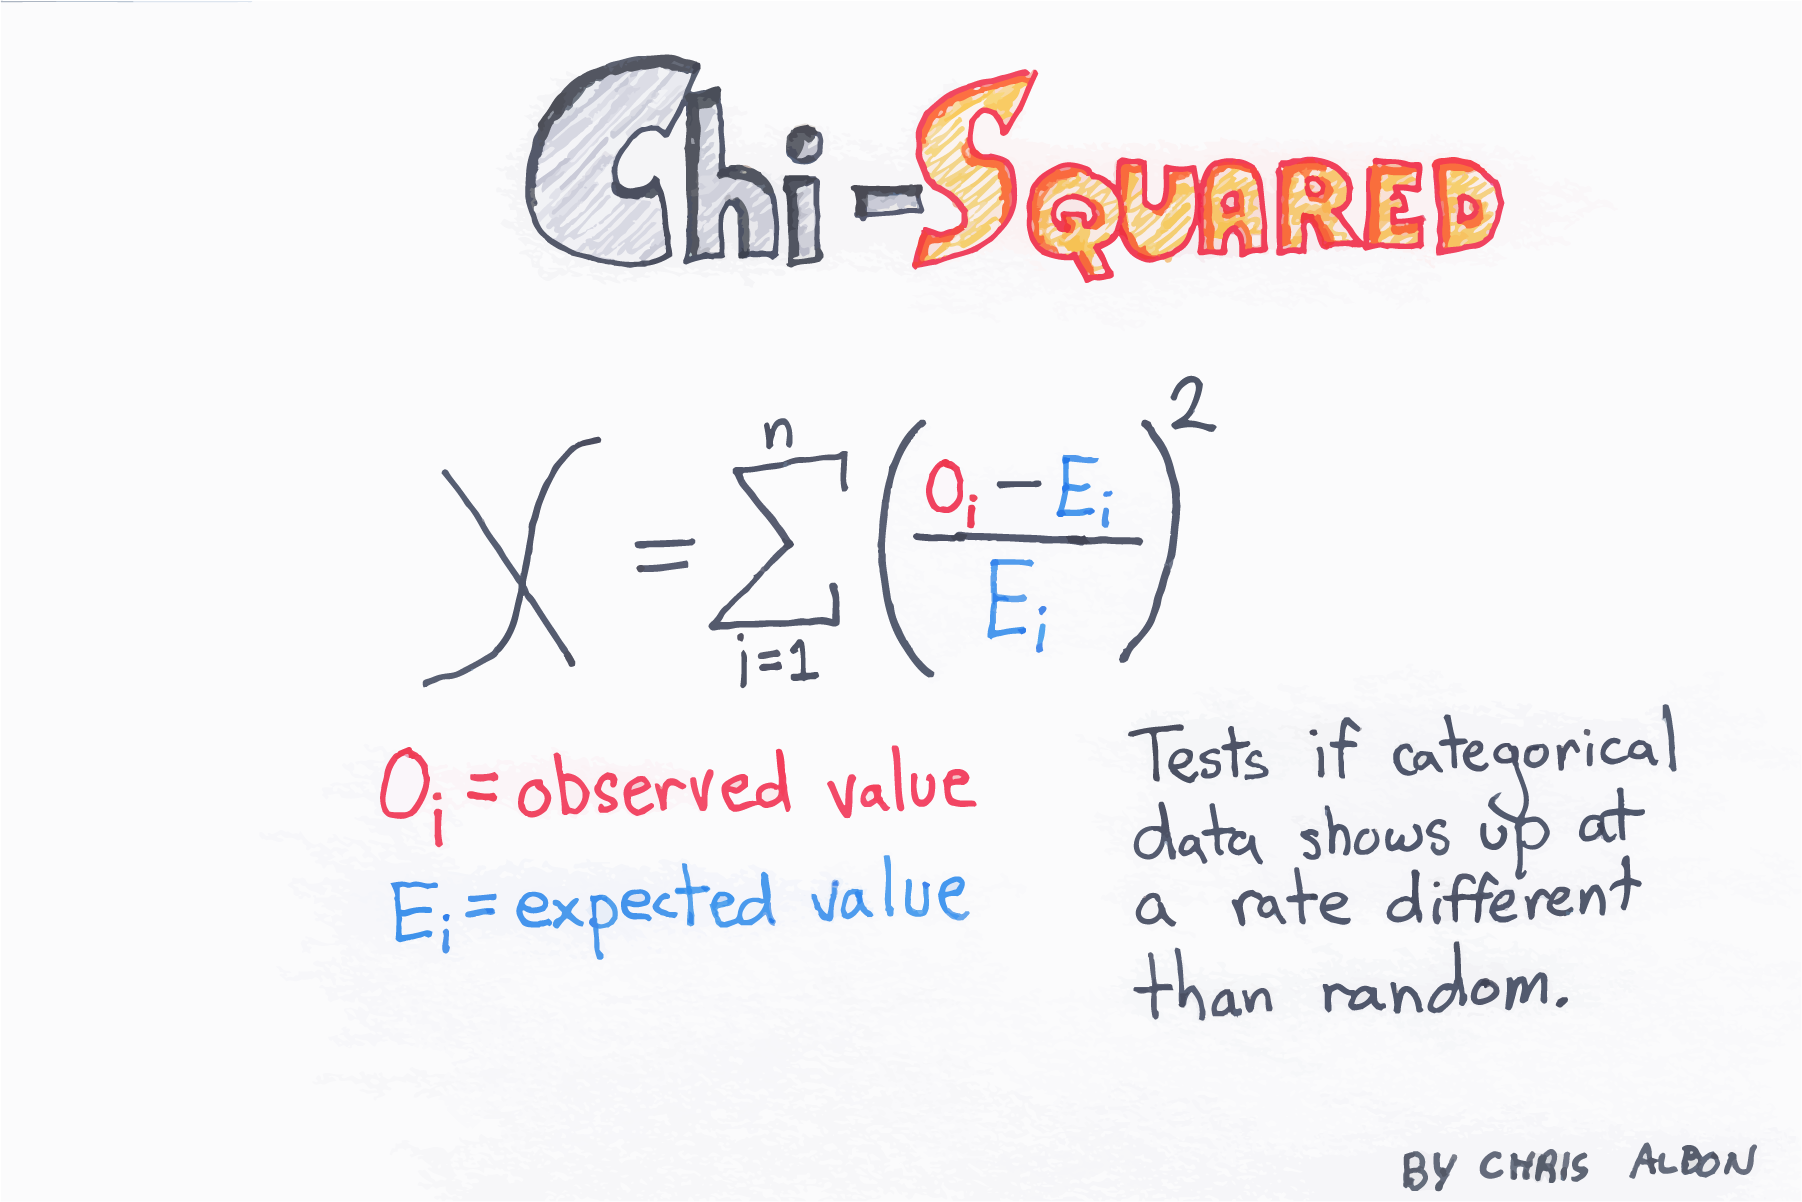 Chi-SQUARED
χ = ∑ⁿᵢ₌₁ ((Oᵢ − Eᵢ) / Eᵢ)²
Oᵢ = observed value
Eᵢ = expected value
Tests if categorical
data shows up at
a rate different
than random.
BY CHRIS ALBON